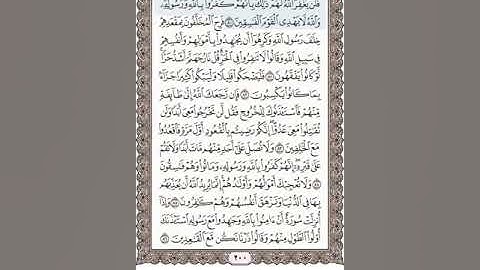 فَلَن يَغْفِرَ ٱللَّهُ لَهُمْ ذَٰلِكَ بِأَنَّهُمْ كَفَرُوا۟ بِٱللَّهِ وَرَسُولِهِۦ
وَٱللَّهُ لَا يَهْدِى ٱلْقَوْمَ ٱلْفَـٰسِقِينَ ۝٨٠ فَرِحَ ٱلْمُخَلَّفُونَ بِمَقْعَدِهِمْ
خِلَـٰفَ رَسُولِ ٱللَّهِ وَكَرِهُوٓا۟ أَن يُجَـٰهِدُوا۟ بِأَمْوَٰلِهِمْ وَأَنفُسِهِمْ
فِى سَبِيلِ ٱللَّهِ وَقَالُوا۟ لَا تَنفِرُوا۟ فِى ٱلْحَرِّ قُلْ نَارُ جَهَنَّمَ أَشَدُّ حَرًّا
لَّوْ كَانُوا۟ يَفْقَهُونَ ۝٨١ فَلْيَضْحَكُوا۟ قَلِيلًا وَلْيَبْكُوا۟ كَثِيرًا جَزَآءًۢ
بِمَا كَانُوا۟ يَكْسِبُونَ ۝٨٢ فَإِن رَّجَعَكَ ٱللَّهُ إِلَىٰ طَآئِفَةٍ
مِّنْهُمْ فَٱسْتَـْٔذَنُوكَ لِلْخُرُوجِ فَقُل لَّن تَخْرُجُوا۟ مَعِىَ أَبَدًا وَلَن
تُقَـٰتِلُوا۟ مَعِىَ عَدُوًّا إِنَّكُمْ رَضِيتُم بِٱلْقُعُودِ أَوَّلَ مَرَّةٍ فَٱقْعُدُوا۟
مَعَ ٱلْخَـٰلِفِينَ ۝٨٣ وَلَا تُصَلِّ عَلَىٰٓ أَحَدٍ مِّنْهُم مَّاتَ أَبَدًا وَلَا تَقُمْ
عَلَىٰ قَبْرِهِۦٓ إِنَّهُمْ كَفَرُوا۟ بِٱللَّهِ وَرَسُولِهِۦ وَمَاتُوا۟ وَهُمْ فَـٰسِقُونَ
۝٨٤ وَلَا تُعْجِبْكَ أَمْوَٰلُهُمْ وَأَوْلَـٰدُهُمْ إِنَّمَا يُرِيدُ ٱللَّهُ أَن يُعَذِّبَهُم
بِهَا فِى ٱلدُّنْيَا وَتَزْهَقَ أَنفُسُهُمْ وَهُمْ كَـٰفِرُونَ ۝٨٥ وَإِذَآ
أُنزِلَتْ سُورَةٌ أَنْ ءَامِنُوا۟ بِٱللَّهِ وَجَـٰهِدُوا۟ مَعَ رَسُولِهِ ٱسْتَـْٔذَنَكَ
أُو۟لُوا۟ ٱلطَّوْلِ مِنْهُمْ وَقَالُوا۟ ذَرْنَا نَكُن مَّعَ ٱلْقَـٰعِدِينَ ۝٨٦
٢٠٠